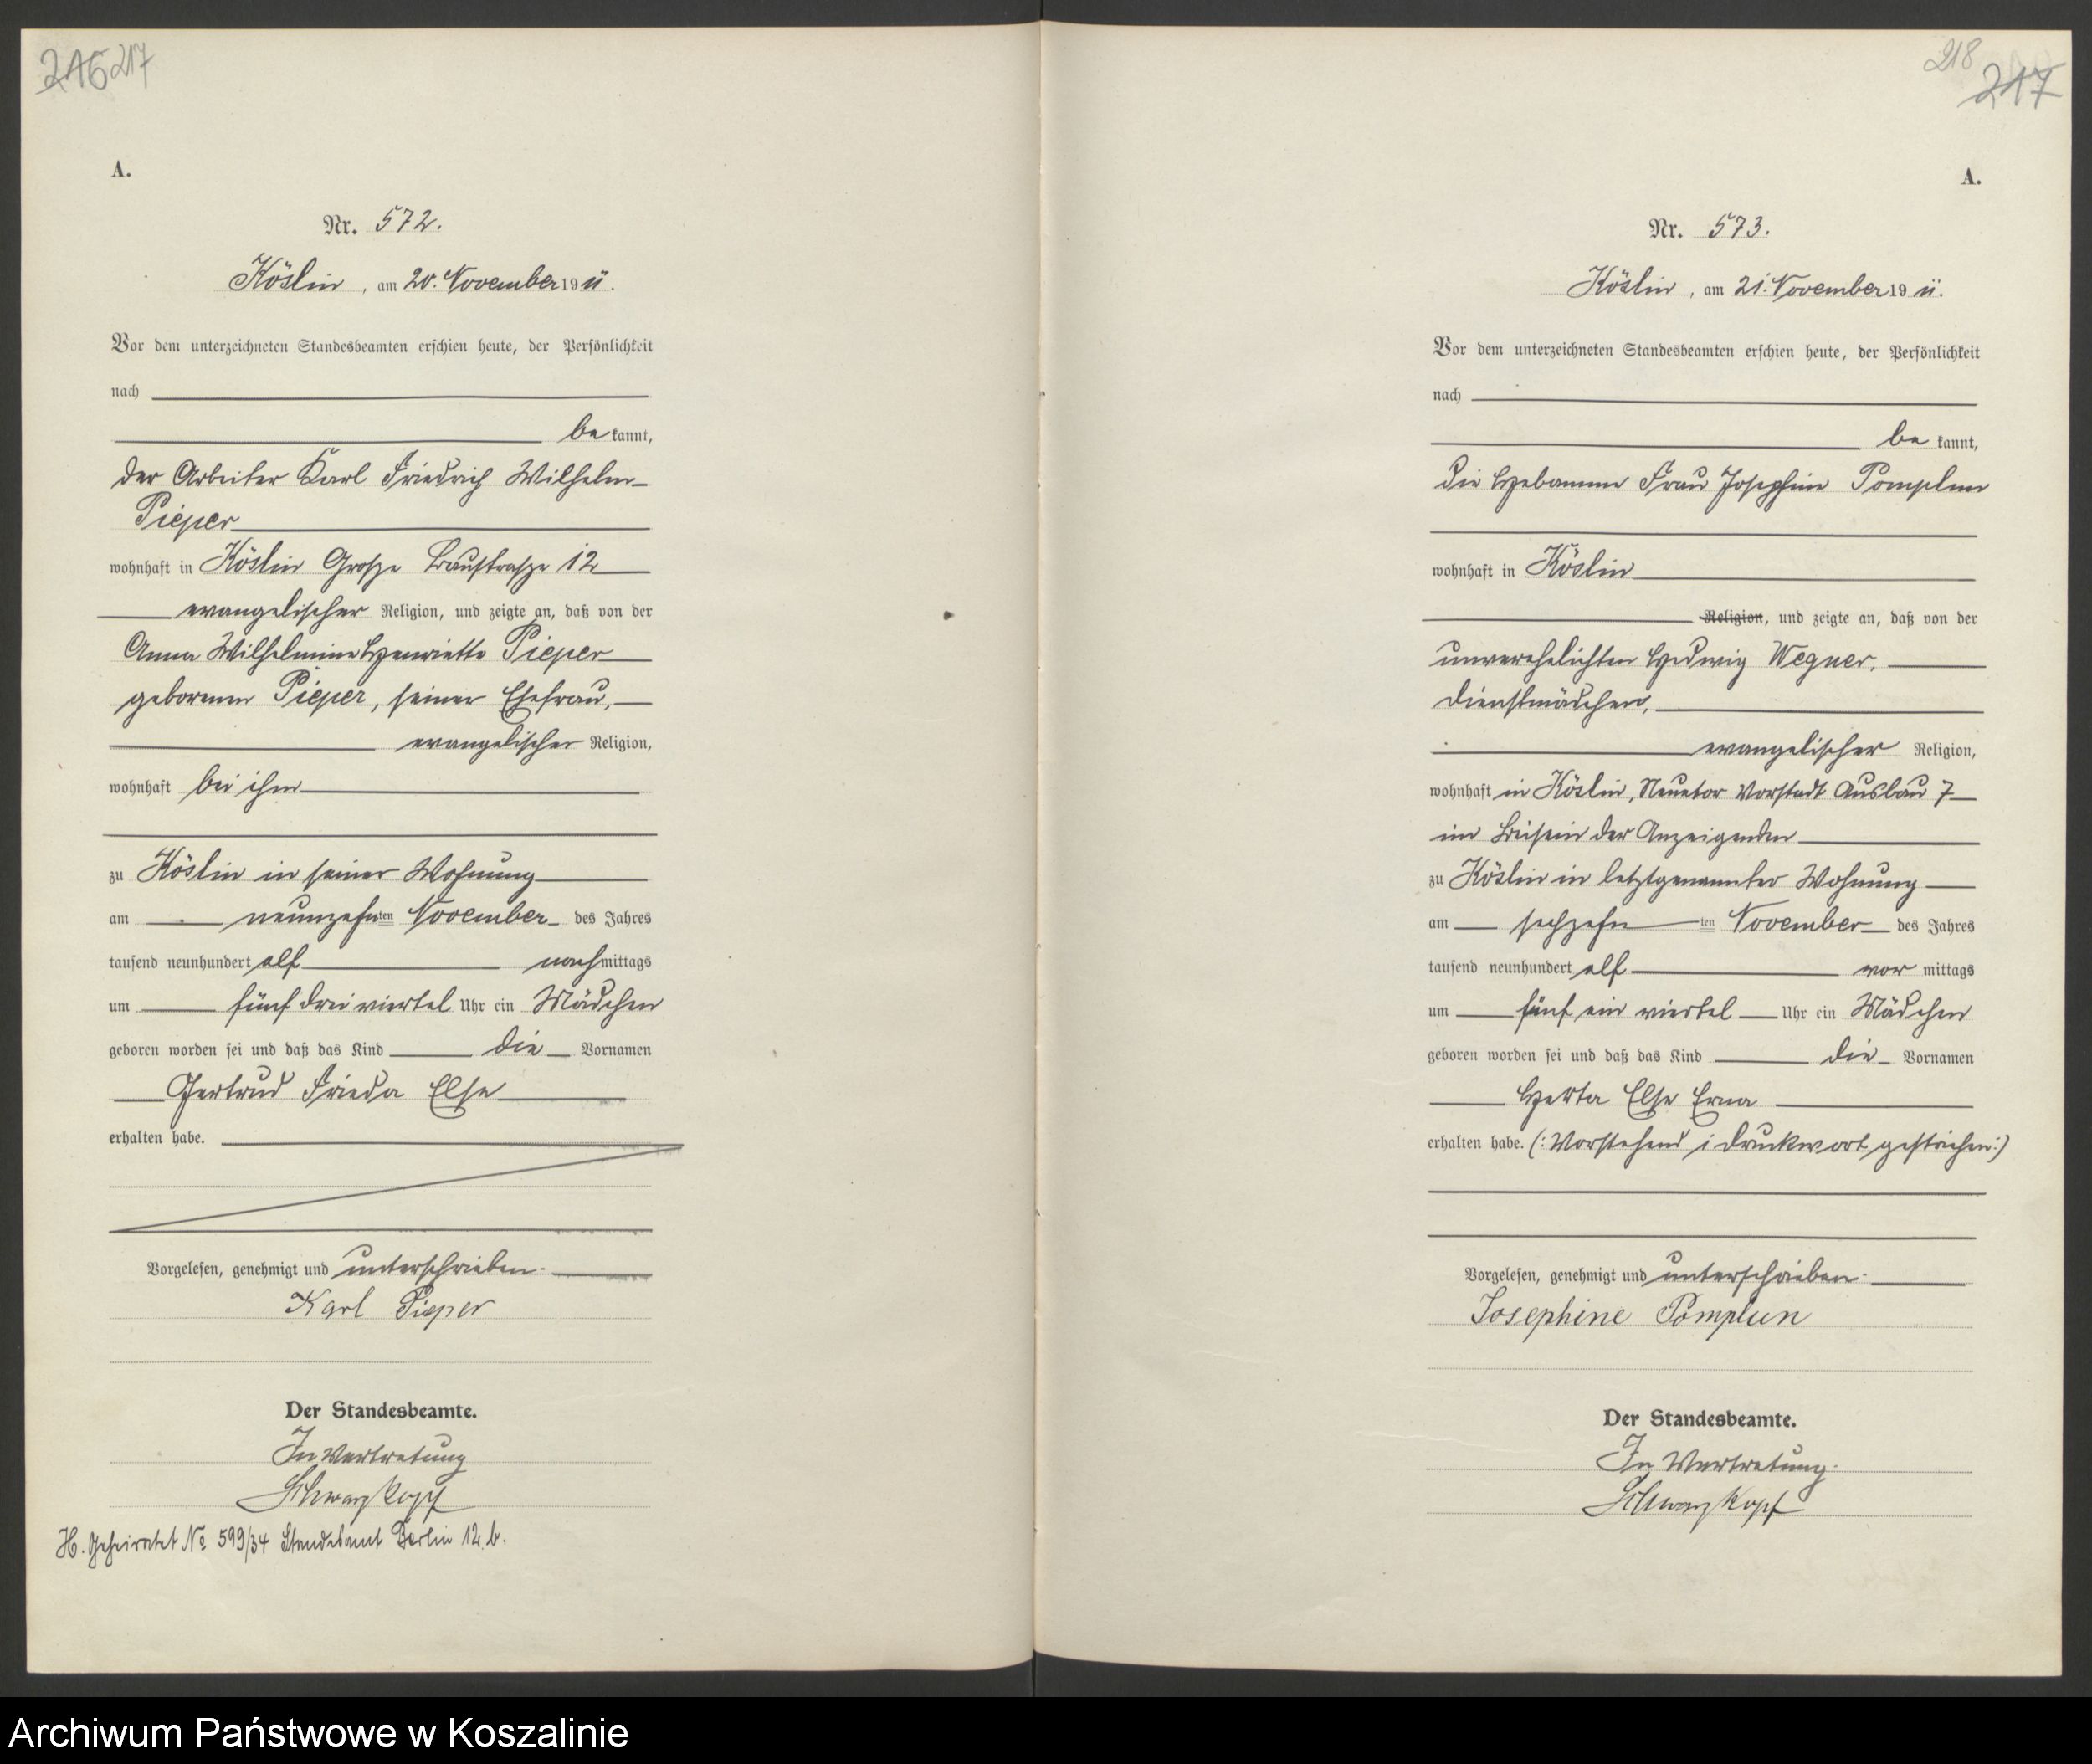 216 217
A.
Nr. 572.
Köslin, am 20. November 1911.
Vor dem unterzeichneten Standesbeamten erschien heute, der Persönlichkeit
nach
be kannt,
der Arbeiter Karl Friedrich Wilhelm
Pieper
wohnhaft in Köslin Große Baustraße 12
evangelischer Religion, und zeigte an, daß von der
Anna Wilhelmine Henriette Pieper
geborenen Pieper, seiner Ehefrau,
evangelischer Religion,
wohnhaft bei ihm
zu Köslin in seiner Wohnung
am neunzehnten November des Jahres
tausend neunhundert elf nachmittags
um fünf drei viertel Uhr ein Mädchen
geboren worden sei und daß das Kind die Vornamen
Gertrud Frieda Else
erhalten habe.
Vorgelesen, genehmigt und unterschrieben.
Karl Pieper
Der Standesbeamte.
In Vertretung
Schwarzkopf
H. Geheiratet No 599/34 Standesamt Berlin 12.b.
218
217
A.
Nr. 573.
Köslin, am 21. November 1911.
Vor dem unterzeichneten Standesbeamten erschien heute, der Persönlichkeit
nach
be kannt,
die Hebamme Frau Josephine Pomplun
wohnhaft in Köslin
Religion, und zeigte an, daß von der
unverehelichten Hedwig Wegner,
Dienstmädchen,
evangelischer Religion,
wohnhaft in Köslin, Neuetor Vorstadt Ausbau 7
im Beisein der Anzeigenden
zu Köslin in letztgenannter Wohnung
am sechzehnten November des Jahres
tausend neunhundert elf vor mittags
um fünf ein viertel Uhr ein Mädchen
geboren worden sei und daß das Kind die Vornamen
Herta Else Erna
erhalten habe. (: Vorstehend 1 Druckwort gestrichen :)
Vorgelesen, genehmigt und unterschrieben.
Josephine Pomplun
Der Standesbeamte.
In Vertretung.
Schwarzkopf
Archiwum Państwowe w Koszalinie